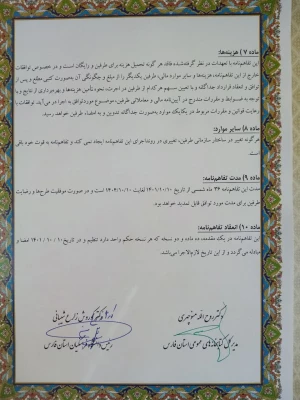 ماده ۷ / هزینه‌ها:
این تفاهم‌نامه با تعهدات در نظر گرفته‌شده فاقد هر گونه تحمیل هزینه برای طرفین و رایگان است و در خصوص توافقات
خارج از این تفاهم‌نامه، هزینه‌ها و سایر موارد مالی، طرفین یکدیگر را از مبلغ و چگونگی آن به‌صورت کتبی مطلع و پس از
توافق و انعقاد قرارداد جداگانه و با تعیین سهم هر کدام از طرفین در اجرت، نحوه تأمین هزینه‌ها و بهره‌برداری از نتایج و با
توجه به ضوابط و مقررات مندرج در آیین‌نامه مالی و معاملاتی طرفین، موضوع مورد توافق به اجرا در می‌آید. توافقات با
رعایت قوانین و مقررات مربوط در یکایک موارد به‌صورت جداگانه تدوین و به امضاء طرفین خواهد رسید.
ماده ۸ / سایر موارد:
هرگونه تغییر در ساختار سازمانی طرفین، تغییری در روند اجرای این تفاهم‌نامه ایجاد نمی کند و تفاهم‌نامه به قوت خود باقی
است.
ماده ۹ / مدت تفاهم‌نامه:
مدت این تفاهم‌نامه ۳۶ ماه شمسی از تاریخ ۱۴۰۱/۱۰/۱۰ لغایت ۱۴۰۴/۱۰/۱۰ است و در صورت موفقیت طرح‌ها و رضایت
طرفین برای مدت مورد توافق قابل تمدید خواهد بود.
ماده ۱۰ / انعقاد تفاهم‌نامه:
این تفاهم‌نامه در یک مقدمه، ده ماده و دو نسخه که هر نسخه حکم واحد دارد تنظیم و در تاریخ ۱۰ / ۱۰ / ۱۴۰۱ امضا و
مبادله می گردد و از این تاریخ لازم‌الاجرا می‌باشد.
دکتر روح اله
مدیر کل کتابخانه‌های عمومی استان فارس
دکتر کوروش
رئیس دانشگاه فرهنگیان استان فارس